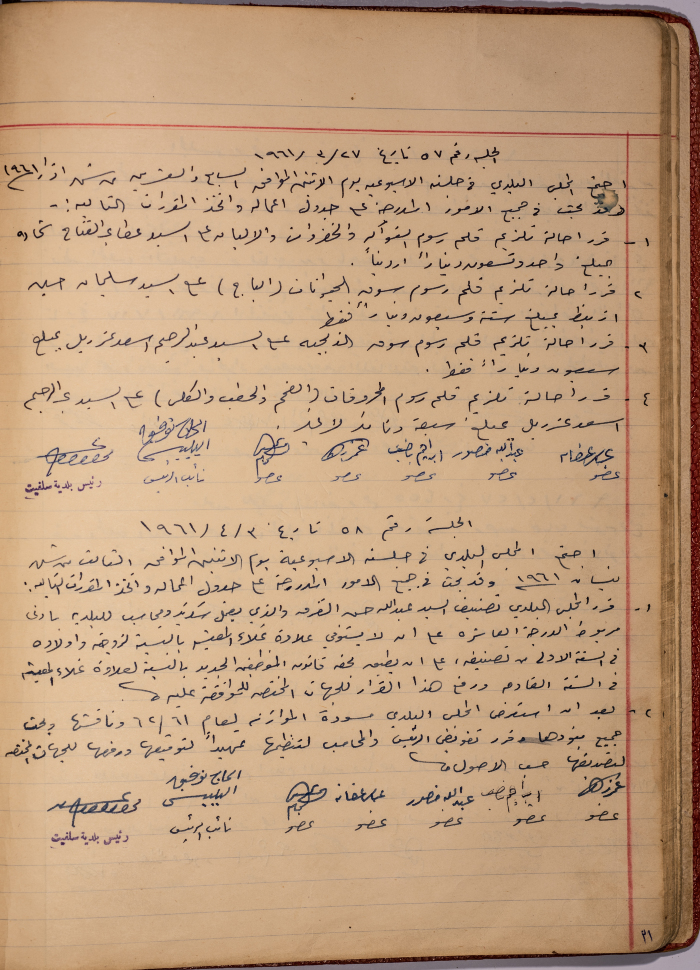 الجلسة رقم ٥٧ تاريخ ٢٧/ ٣/ ١٩٦١
اجتمع المجلس البلدي في جلسته الاسبوعيه يوم الاثنين الموافق السابع والعشرين من شهر اذار ١٩٦١
وقد بحث في جميع الامور المدرجة على جدول اعماله واتخذ المقررات التاليه :-
١- قرر احالة تلزيم قلم رسوم الفواكه والخضروات والالبان على السيد عطا عبد الفتاح
بمبلغ واحد وتسعون ديناراً اردنياً .
٢- قرر احالة تلزيم قلم رسوم سوق الحيوانات (الباج) على السيد سليمان حسين
بمبلغ ستة وسبعون ديناراً فقط
٣- قرر احالة تلزيم قلم رسوم سوق الذبحيه على السيد عبد الرحيم اسعد عزريل بمبلغ
سبعون ديناراً فقط .
٤- قرر احالة تلزيم قلم رسوم المحروقات (الفحم والحطب والكلس) على السيد عبد الرحيم
اسعد عزريل بمبلغ سبعة دنانير لا غير
عبد الله منصور
الحاج توفيق
عضو عضو عضو عضو عضو نائب الرئيس
رئيس بلدية سلفيت
الجلسة رقم ٥٨ تاريخ ٣ /٤ /١٩٦١
اجتمع المجلس البلدي في جلسته الاسبوعية يوم الاثنين الموافق الثالث من شهر
نيسان ١٩٦١ وقد بحث في جميع الامور المدرجة على جدول اعماله واتخذ المقررات التاليه :
١- قرر المجلس البلدي تصنيف السيد عبد الله حسن والذي يعمل سكرتير ومحاسب للبلديه بادنى
مربوط الدرجة العاشره على ان لا يستوفي علاوة غلاء المعيشه بالنسبة لزوجته واولاده
في السنة الاولى من تصنيفه ، على ان يطبق بحقه قانون الموظفين الجديد بالنسبة لعلاوة غلاء المعيشه
في السنة القادمه ورفع هذا القرار للجهات المختصه للموافقة عليه
٢- بعد ان استعرض المجلس البلدي مسودة الموازنه لعام ٦٢/٦١ وناقشها وبحث
جميع بنودها وقرر تفويض الرئيس والمحاسب لتنظيمها تمهيداً لتوقيعها ورفعها للجهات المختصه
لتصديقها حسب الاصول
عبد الله منصور
الحاج توفيق
عضو عضو عضو عضو عضو نائب الرئيس
رئيس بلدية سلفيت
٣١